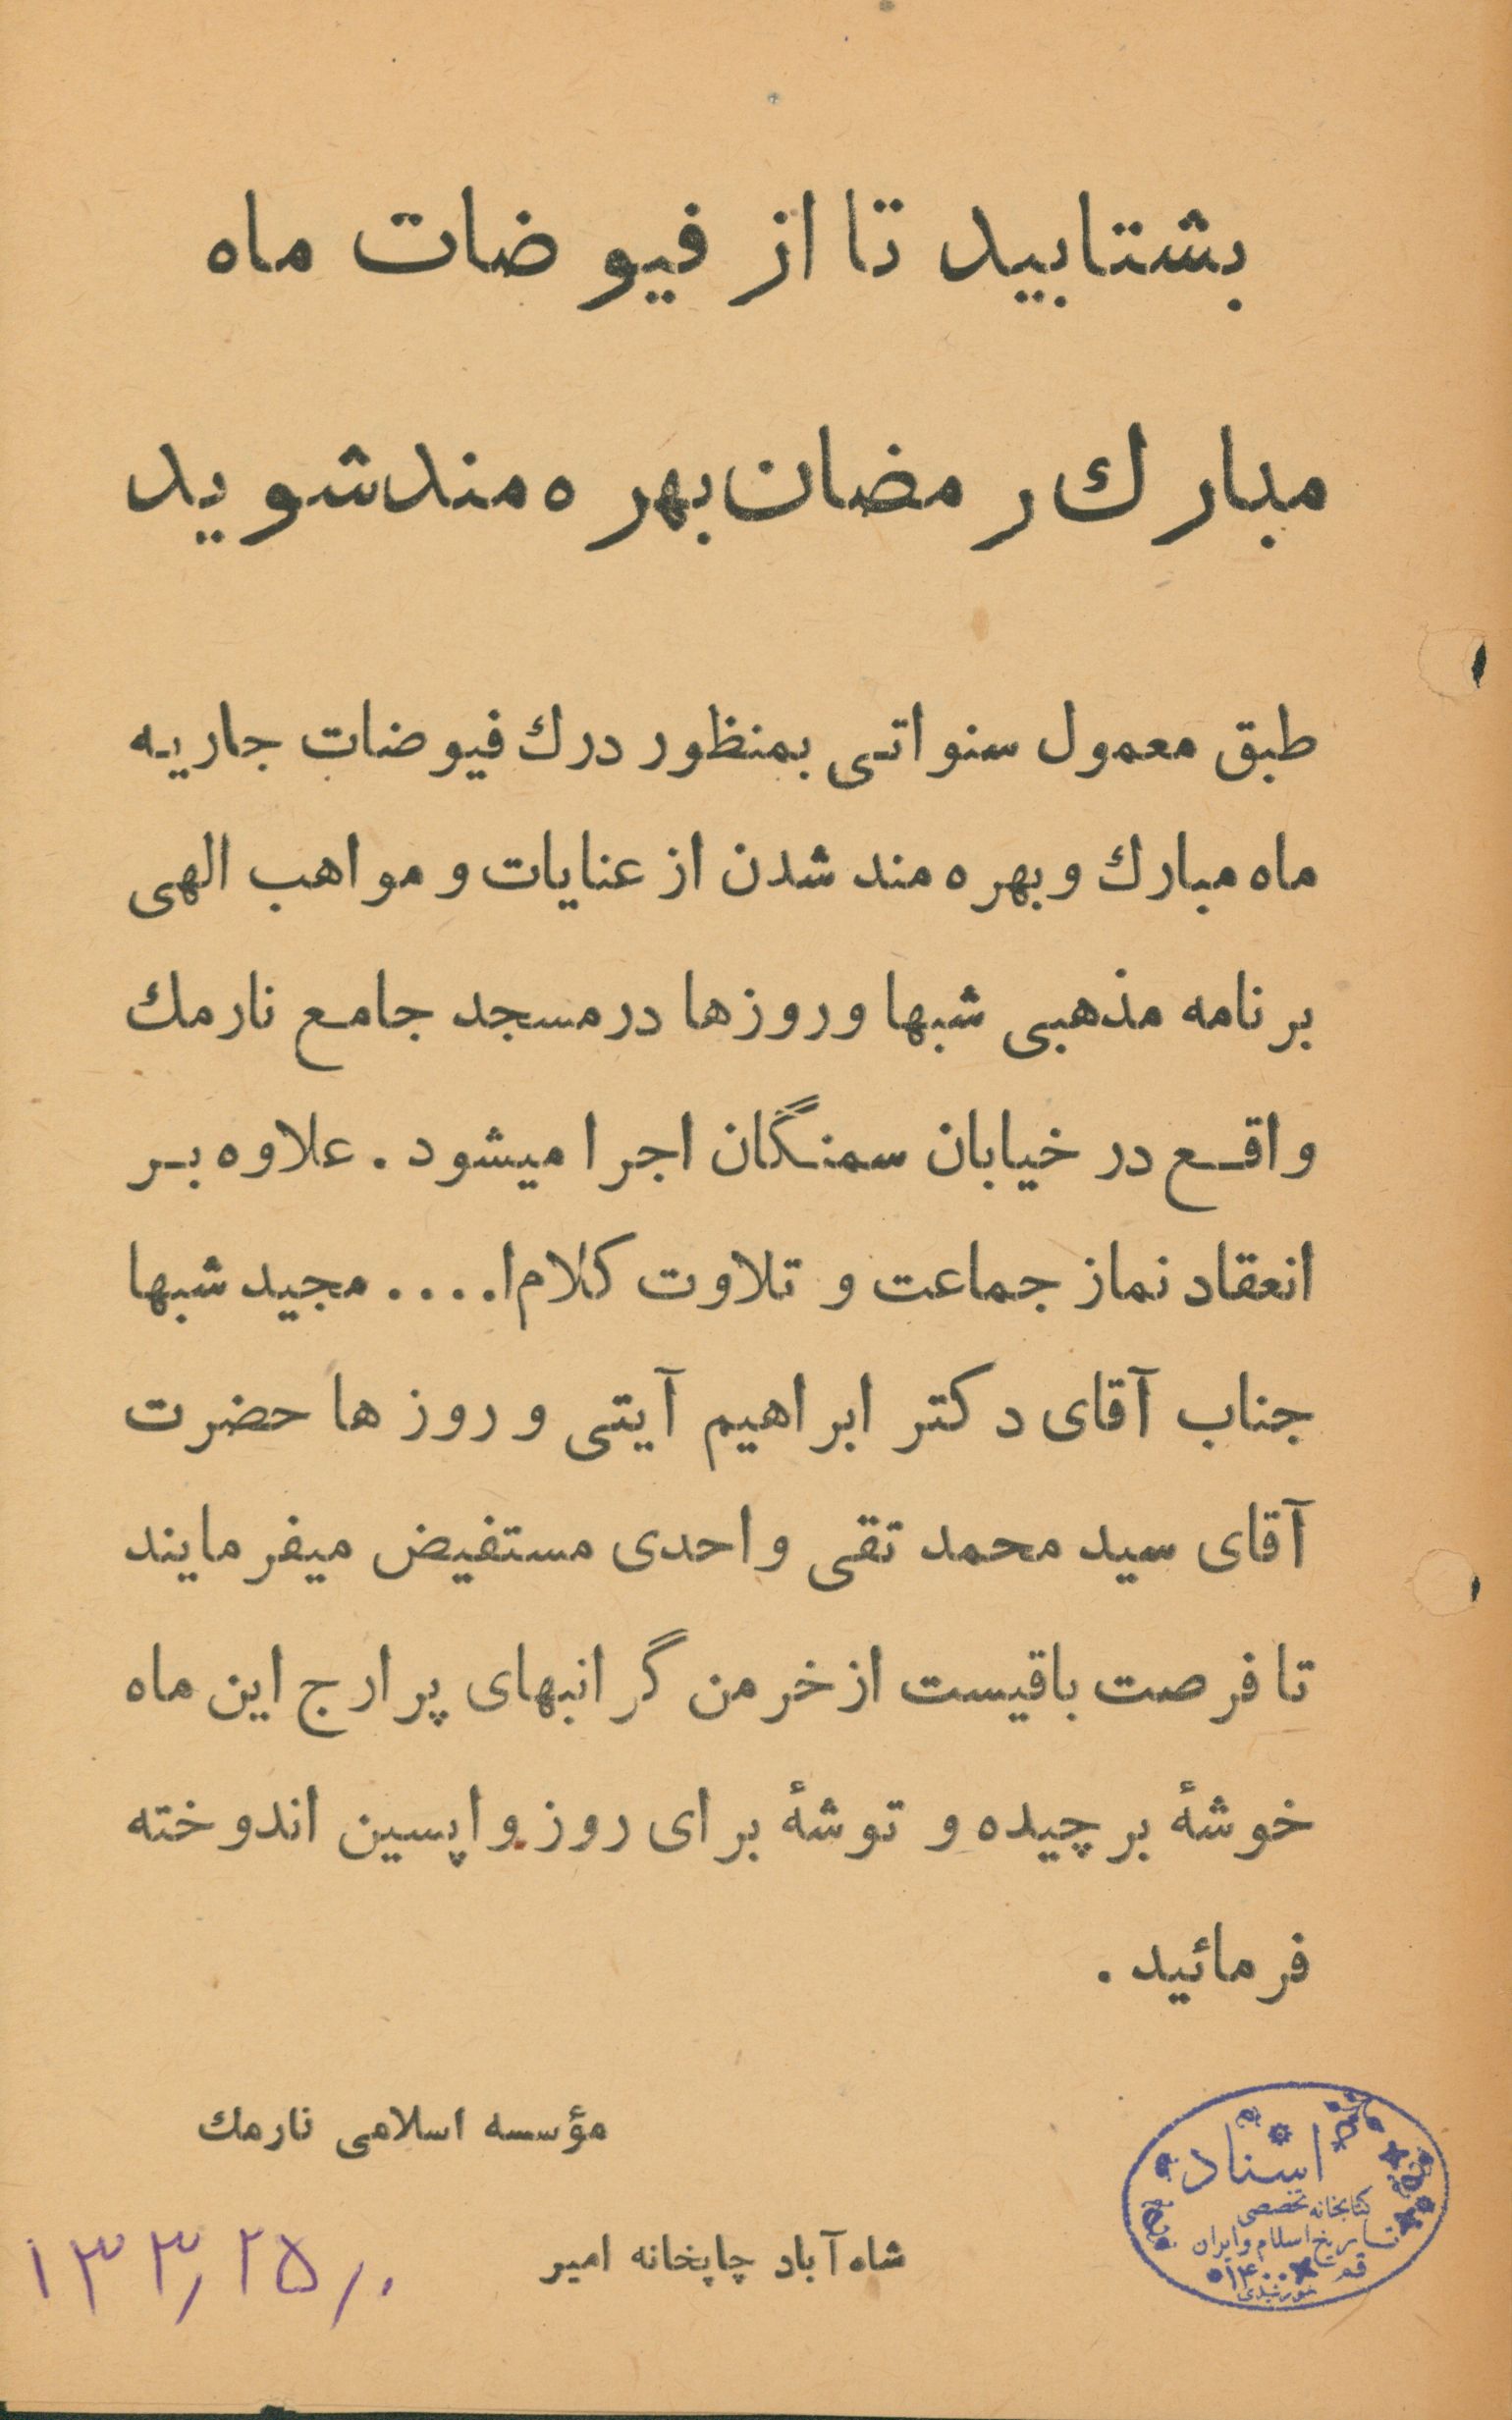 بشتابید تا از فیوضات ماه
مبارك رمضان بهره مند شوید
طبق معمول سنواتی بمنظور درك فیوضات جاریه
ماه مبارك و بهره مند شدن از عنایات و مواهب الهی
برنامه مذهبی شبها و روزها در مسجد جامع نارمك
واقع در خیابان سمنگان اجرا میشود. علاوه بر
انعقاد نماز جماعت و تلاوت کلام ا.... مجید شبها
جناب آقای دکتر ابراهیم آیتی و روزها حضرت
آقای سید محمد تقی واحدی مستفیض میفرمایند
تا فرصت باقیست از خرمن گرانبهای پر ارج این ماه
خوشهٔ برچیده و توشهٔ برای روز واپسین اندوخته
فرمائید.
مؤسسه اسلامی نارمك
شاه آباد چاپخانه امیر
اسناد
کتابخانه تخصصی
تاریخ اسلام و ایران
قم
خورشیدی